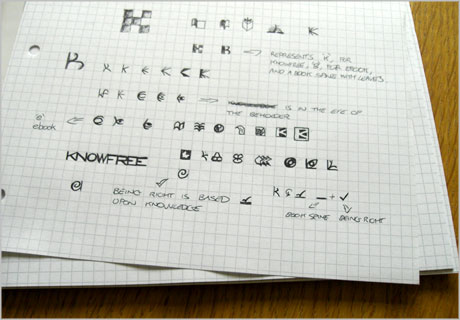 K
REPRESENTS, 'K', FOR
KNOWFREE, 'e', FOR EBOOK,
AND A BOOK SPINE WITH LEAVES
K K
IS IN THE EYE OF
THE BEHOLDER
'e'
ebook
KNOWFREE
BEING RIGHT IS BASED
UPON KNOWLEDGE
+ ✓
BOOK SPINE BEING RIGHT